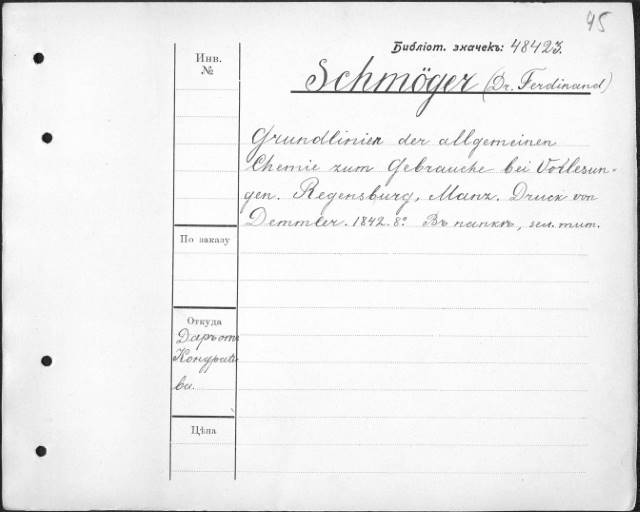 95
Библіот. значекъ: 48423.
Инв.
№
Schmöger (Dr. Ferdinand)
Grundlinien der allgemeinen
Chemie zum Gebrauche bei Vorlesun-
gen. Regensburg, Manz. Druck von
Demmler. 1842. 8º. Въ папкѣ, зел. тит.
По заказу
Откуда
Даръ отъ
Кондратье
ва.
Цѣна